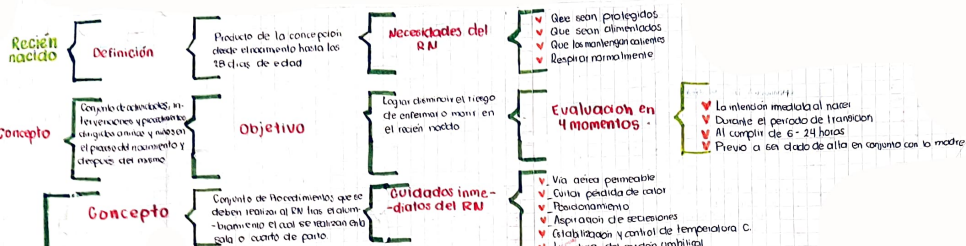 Recién
nacido
Definición
Producto de la concepcion
desde el nacimiento hasta los
28 dias de edad
Necesidades del
RN
Que sean protegidos
Que sean alimentados
Que los mantengan calientes
Respirar normalmente
Concepto
Conjunto de actividades, in-
tervenciones y
dirigidas a niñas y niños en
el proceso del nacimiento y
después del mismo
Objetivo
Lograr disminuir el riesgo
de enfermar o morir en
el recién nacido
Evaluacion en
4 momentos.
La intención imediata al nacer
Durante el periodo de transicion
Al cumplir de 6-24 horas
Previo a ser dado de alta en conjunto con la madre
Concepto
Conjunto de Procedimientos que se
deben realizar al RN tras el alum-
-bramiento el cual se realizan en la
sala o cuarto de parto.
Cuidados inme-
-diatos del RN
Via aérea permeable
Cuitar pérdida de calor
Posicionamiento
Aspiración de secresiones
Estabilización y control de temperatura C.
umbilical